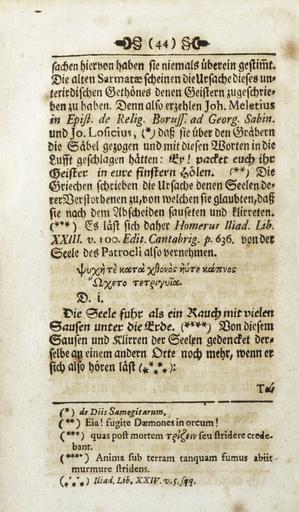 § (44) §
sachen hiervon haben sie niemals überein gestim̃t.
Die alten Sarmatæ scheinen die Ursache dieses un-
terirdischen Gethönes denen Geistern zugeschrie-
ben zu haben. Denn also erzehlen Joh. Meletius
in Epist. de Relig. Boruss. ad Georg. Sabin.
und Jo. Losicius, (*) daß sie über den Gräbern
die Säbel gezogen und mit diesen Worten in die
Lufft geschlagen hätten: Ey! packet euch ihr
Geister in eure finstern Hölen. (**) Die
Griechen schrieben die Ursache denen Seelen de-
rer Verstorbenen zu, von welchen sie glaubten, daß
sie nach dem Abscheiden sauseten und klirreten.
(***) Es läst sich daher Homerus Iliad. Lib.
XXIII. v. 100. Edit. Cantabrig. p. 636. von der
Seele des Patrocli also vernehmen.
ψυχὴ τὲ κατὰ χθονὸς ἠΰτε κάπνος
Ὤχετο τετριγυῖα.
D. i.
Die Seele fuhr als ein Rauch mit vielen
Sausen unter die Erde. (****) Von diesem
Sausen und Klirren der Seelen gedencket der-
selbe an einem andern Orte noch mehr, wenn er
sich also hören läst (*****):
Τὰς
(*) de Diis Samogitarum.
(**) Eia! fugite Dæmones in orcum!
(***) quas post mortem τρίζειν seu stridere crede-
bant.
(****) Anima sub terram tanquam fumus abiit
murmure stridens.
(*****) Iliad. Lib. XXIV. v. 5. sqq.